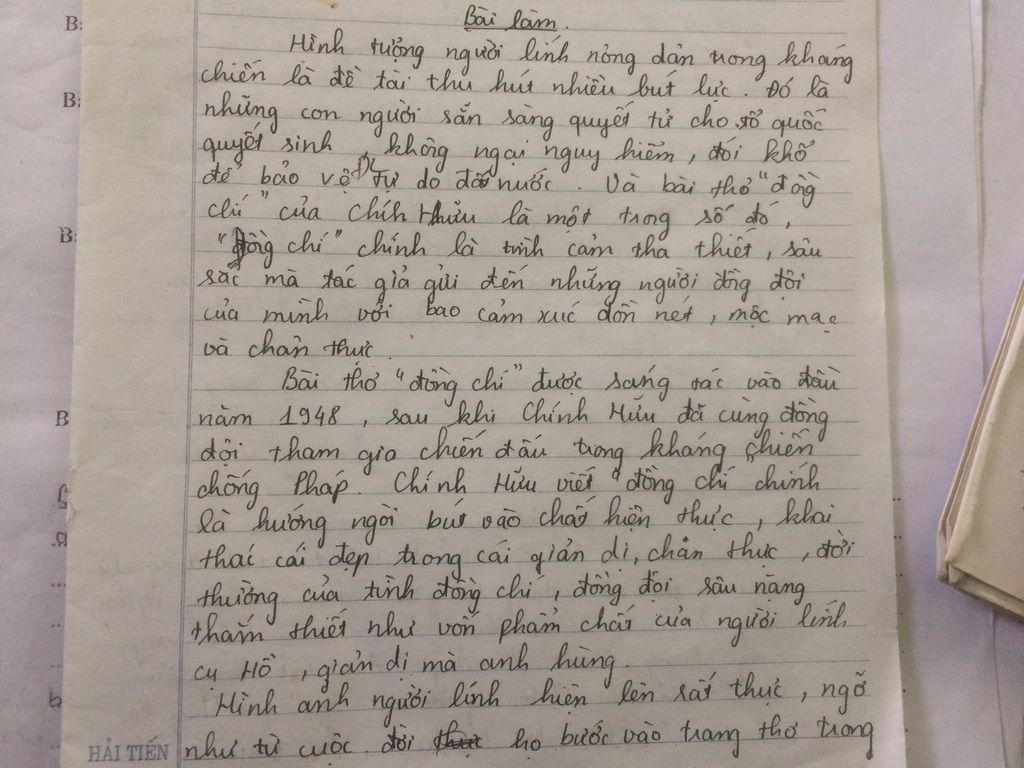 Bài làm.
Hình tượng người lính nông dân trong kháng
chiến là đề tài thu hút nhiều bút lực. Đó là
những con người sẵn sàng quyết tử cho tổ quốc
quyết sinh, không ngại nguy hiểm, đói khổ
để bảo vệ ĐL Tự do đất nước. Và bài thơ "đồng
chí" của Chính Hữu là một trong số đó,
"Đồng chí" chính là tình cảm tha thiết, sâu
sắc mà tác giả gửi đến những người đồng đội
của mình với bao cảm xúc dồn nét, mộc mạc
và chân thực.
Bài thơ "đồng chí" được sáng tác vào đầu
năm 1948, sau khi Chính Hữu đã cùng đồng
đội tham gia chiến đấu trong kháng chiến
chống Pháp. Chính Hữu viết "đồng chí" chính
là hướng ngòi bút vào chất hiện thực, khai
thác cái đẹp trong cái giản dị, chân thực, đời
thường của tình đồng chí, đồng đội sâu nặng
thắm thiết như vốn phẩm chất của người lính
cụ Hồ, giản dị mà anh hùng.
Hình anh người lính hiện lên rất thực, ngỡ
như từ cuộc đời họ bước vào trang thơ trong
HẢI TIẾN